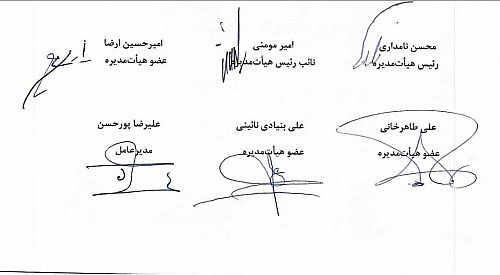 محسن نامداری
رئیس هیأت‌مدیره
امیر مومنی
نائب رئیس هیأت‌مدیره
امیرحسین ارضا
عضو هیأت‌مدیره
علی طاهرخانی
عضو هیأت‌مدیره
علی بنیادی نائینی
عضو هیأت‌مدیره
علیرضا پورحسن
مدیرعامل